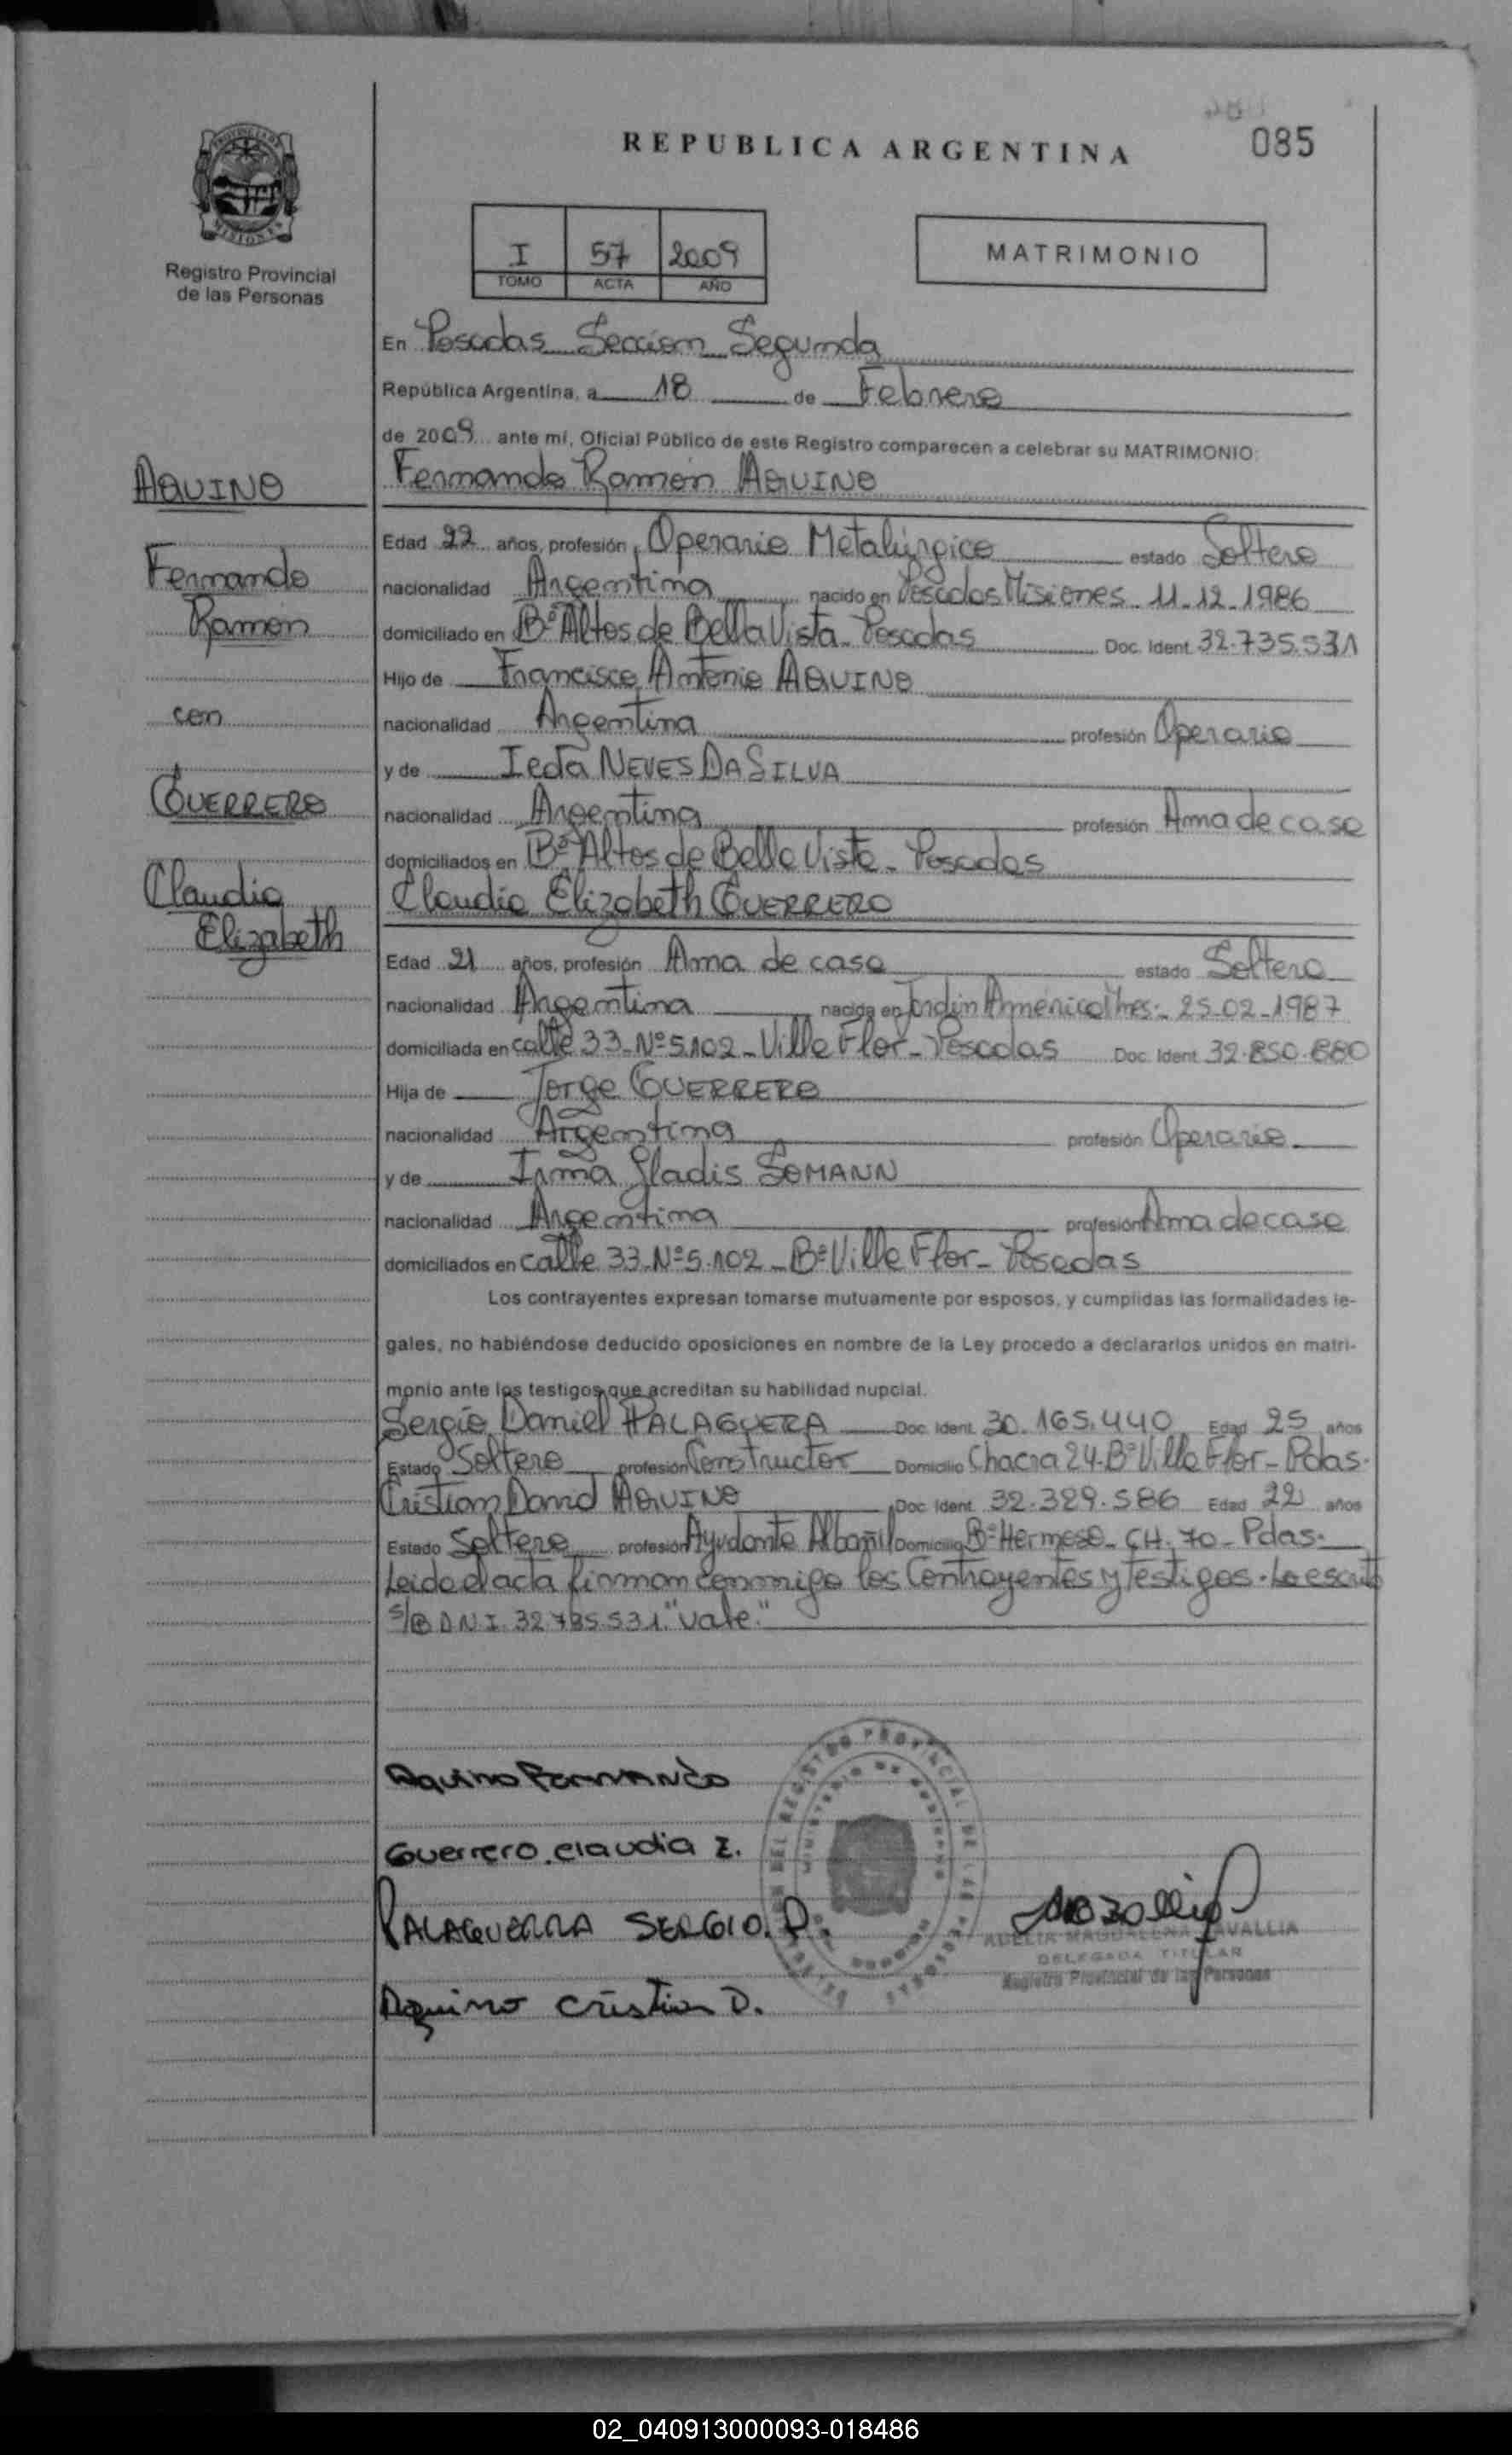 REPUBLICA ARGENTINA
085
Registro Provincial
de las Personas
I 57 2009
TOMO ACTA AÑO
MATRIMONIO
En Posadas Sección Segunda
República Argentina, a 18 de Febrero
de 2009 ante mí, Oficial Público de este Registro comparecen a celebrar su MATRIMONIO:
AQUINO
Fernando
Ramón
con
GUERRERO
Claudia
Elizabeth
Fernando Ramón AQUINO
Edad 22 años, profesión Operario Metalúrgico estado Soltero
nacionalidad Argentina nacido en Posadas Misiones 11-12-1986
domiciliado en Bº Altos de Bella Vista - Posadas Doc. Ident. 32.735.531
Hijo de Francisco Antonio AQUINO
nacionalidad Argentina profesión Operario
y de Ieda NEVES DA SILVA
nacionalidad Argentina profesión Ama de casa
domiciliados en Bº Altos de Bella Vista - Posadas
Claudia Elizabeth GUERRERO
Edad 21 años, profesión Ama de casa estado Soltera
nacionalidad Argentina nacida en Jardín América Mnes - 25-02-1987
domiciliada en calle 33 - Nº 5.102 - Villa Flor - Posadas Doc. Ident. 32.850.880
Hija de Jorge GUERRERO
nacionalidad Argentina profesión Operario
y de Irma Gladis SOMANN
nacionalidad Argentina profesión Ama de casa
domiciliados en calle 33 - Nº 5.102 - Bº Villa Flor - Posadas
Los contrayentes expresan tomarse mutuamente por esposos, y cumplidas las formalidades le-
gales, no habiéndose deducido oposiciones en nombre de la Ley procedo a declararlos unidos en matri-
monio ante los testigos que acreditan su habilidad nupcial.
Sergio Daniel PALAGUERA Doc. Ident. 30.165.440 Edad 25 años
Estado Soltero profesión Constructor Domicilio Chacra 24 - Bº Villa Flor - Pdas.
Cristian David AQUINO Doc. Ident. 32.329.586 Edad 22 años
Estado Soltero profesión Ayudante Albañil Domicilio Bº Hermoso - CH. 70 - Pdas.
Leida el acta firman conmigo los Contrayentes y Testigos. Lo escrito
s/B D.N.I. 32.735.531 "Vale."
Aquino Fernando
Guerrero Claudia E.
PALAGUERRA SERGIO. D.
Aquino Cristian D.
DELEGADA TITULAR
Registro Provincial de las Personas
02_040913000093-018486